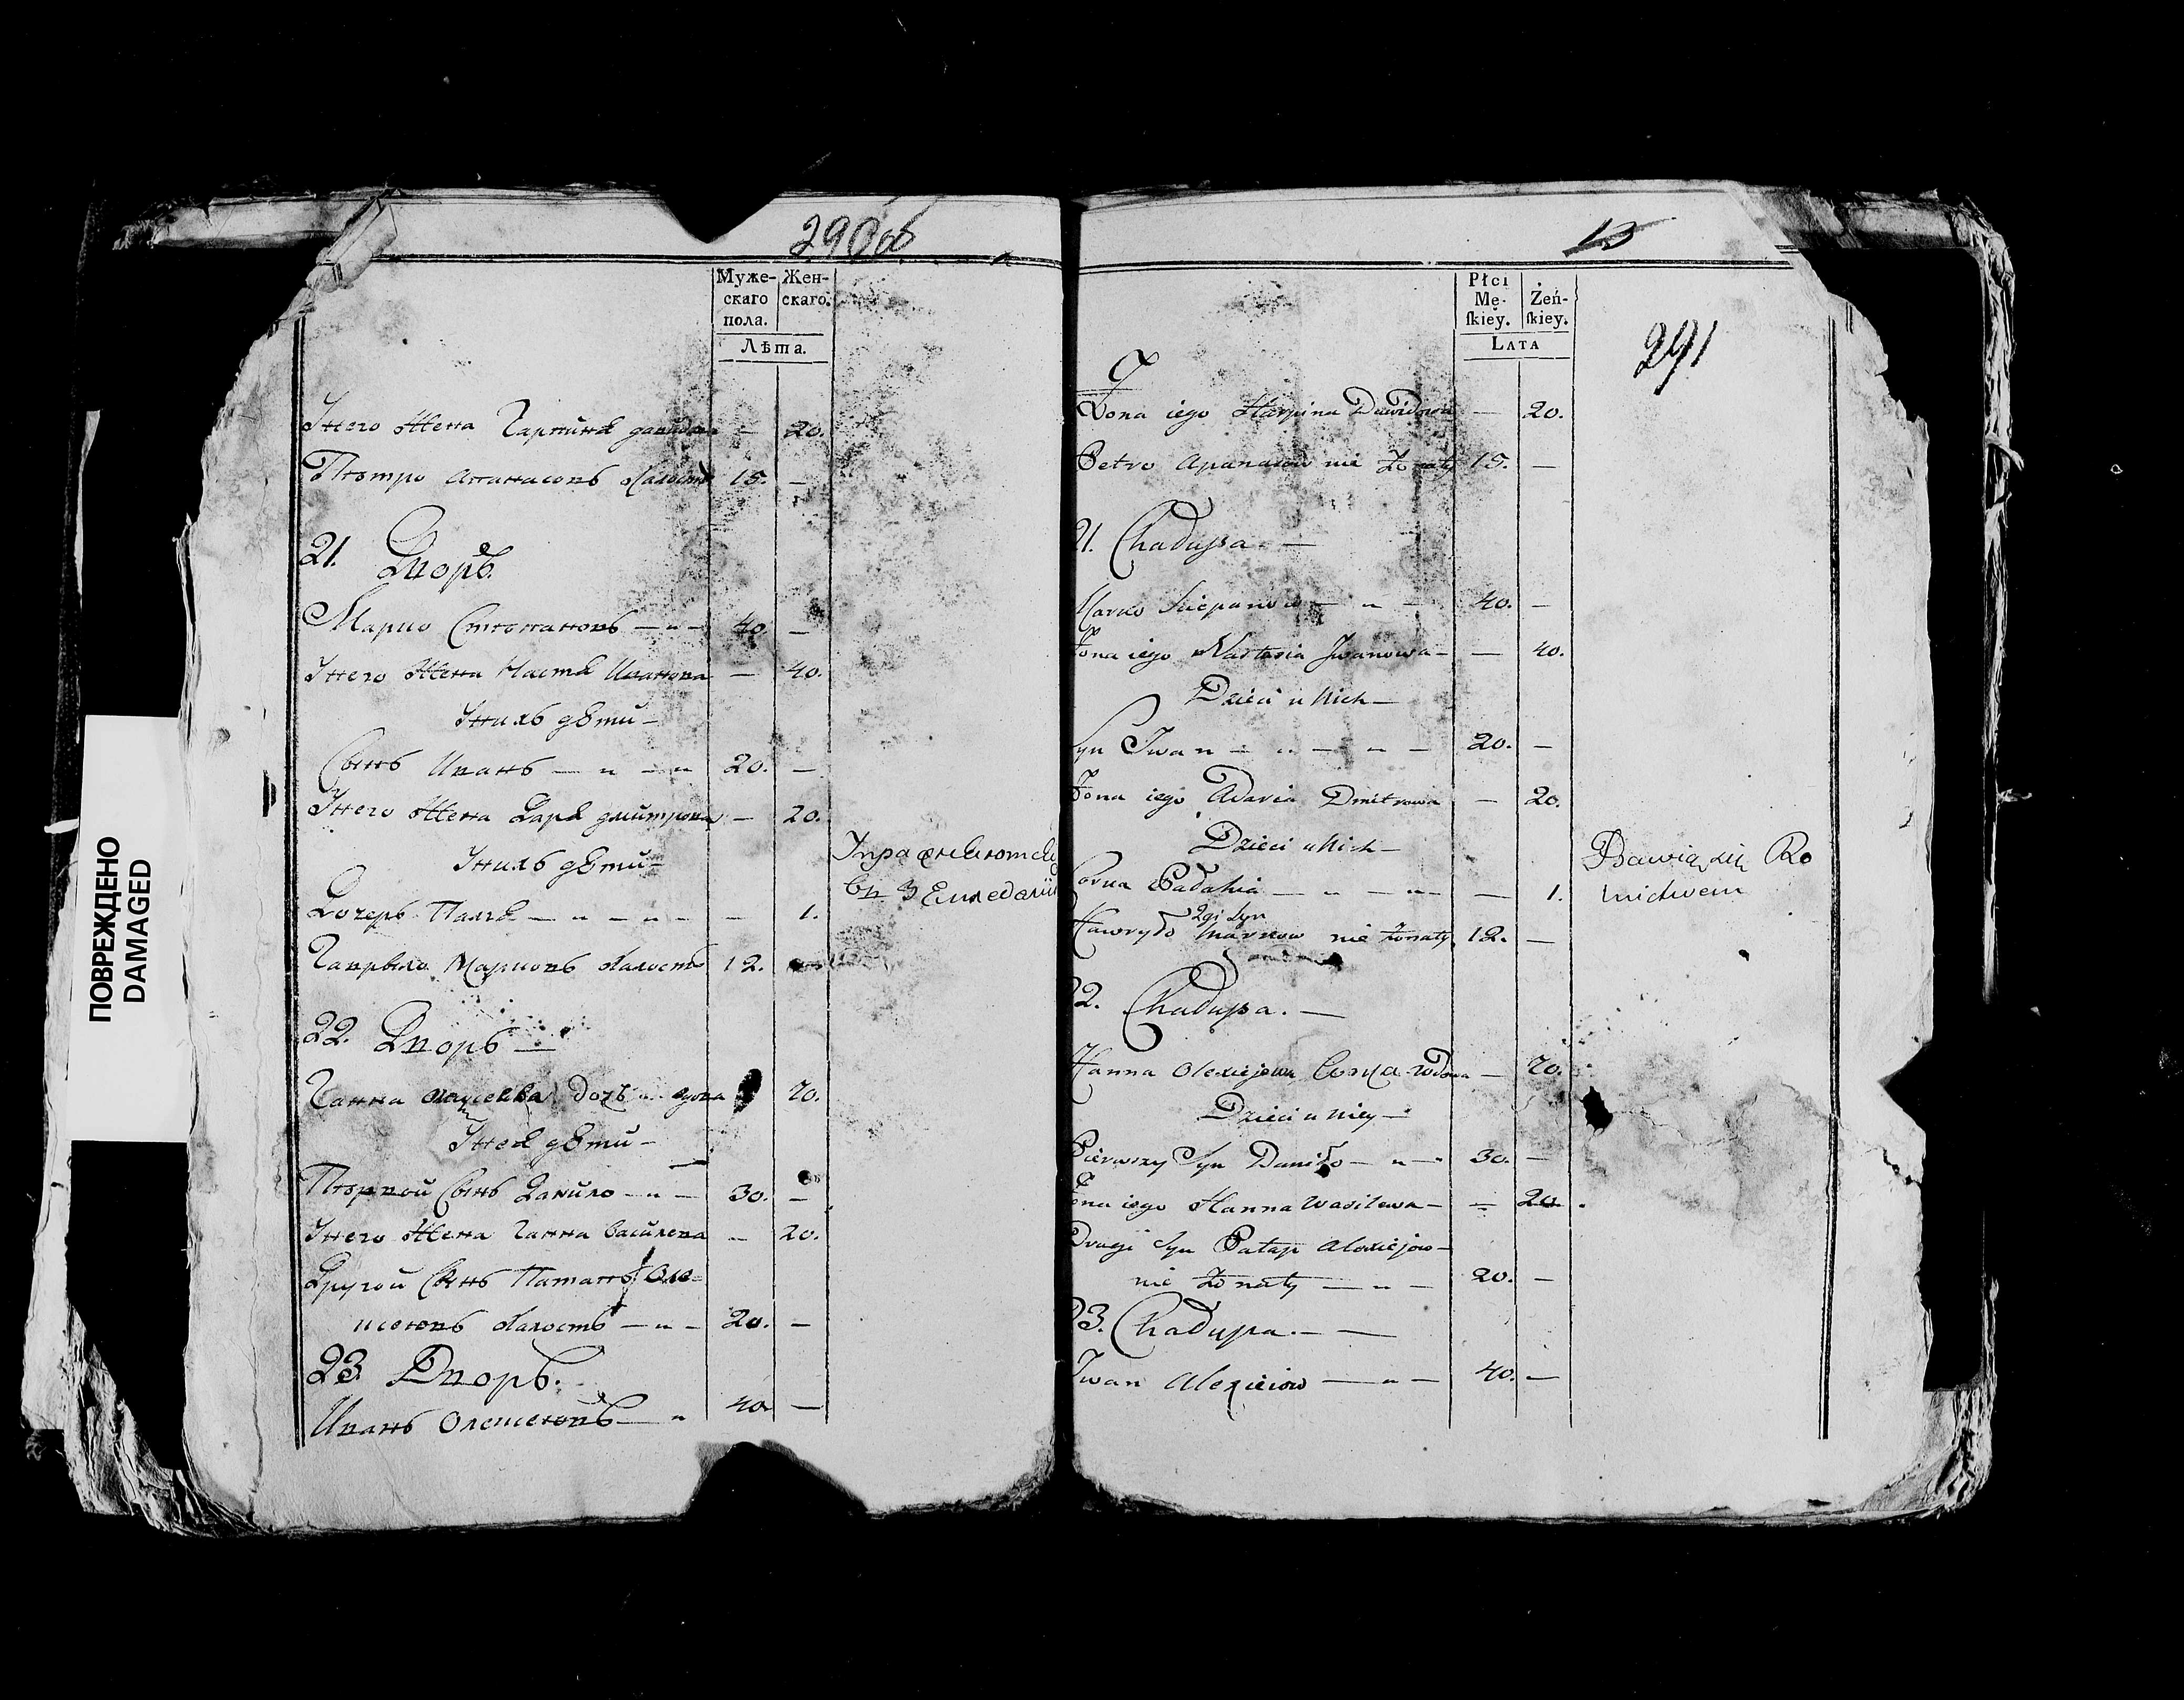 290 об
Муже-
скаго
пола.
Жен-
скаго.
Лѣта.
Унего жена Гарпина давидова — 20.
Пiотро Апанасовъ халостъ 15. —
21. Дворъ.
Марко Стiопановъ — " — 40. —
Унего жена Настя Иванова — 40.
Унихъ дѣти —
Сынъ Иванъ — " — " 20. —
Унего жена Даря дмитрова — 20.
Унихъ дѣти —
Дочеръ — " — " — — 1.
Упражняются
въ Земледелiи
Гаврыло Марковъ халостъ 12.
22. Дворъ —
Ганна вдова 70.
Унея дѣти —
Первой Сынъ Данило — " — 30. —
Унего жена Ганна василева — 20.
Другой Сынъ Патапъ Оле=
ксеювъ халостъ — " — 20. —
23. Дворъ.
Иванъ Олексеювъ — " 40. —
13
Płci
Mę-
ſkiey.
Żeń-
ſkiey.
LATA
291
Żona iego Harpina Dawidowa — 20.
Petro Apanasow nie Żonaty 15. —
21. Chałupa. —
Marko Sciepanow — " — 40. —
Żona iego Nastasia Jwanowa — — 40.
Dzieci u Nich —
Syn Jwan — " — " — 20. —
Żona iego Adaria Dmitrowa — 20.
Dzieci u Nich —
Corka — " — " — — 1.
Bawią się Ro
lnictwem
2gi Syn
Hawryło Markow nie żonaty 12. —
22. Chałupa. —
Hanna Olexiejowa wdowa — 70.
Dzieci u Niey —
Pierwszy Syn Daniło — " — 30. —
Żona iego Hanna Wasilewa — — 20.
Drugi Syn Patap Alexiejow —
nie Żonaty — " — 20. —
23. Chałupa. — —
Jwan Alexieiow — " — 40. —
ПОВРЕЖДЕНО
DAMAGED